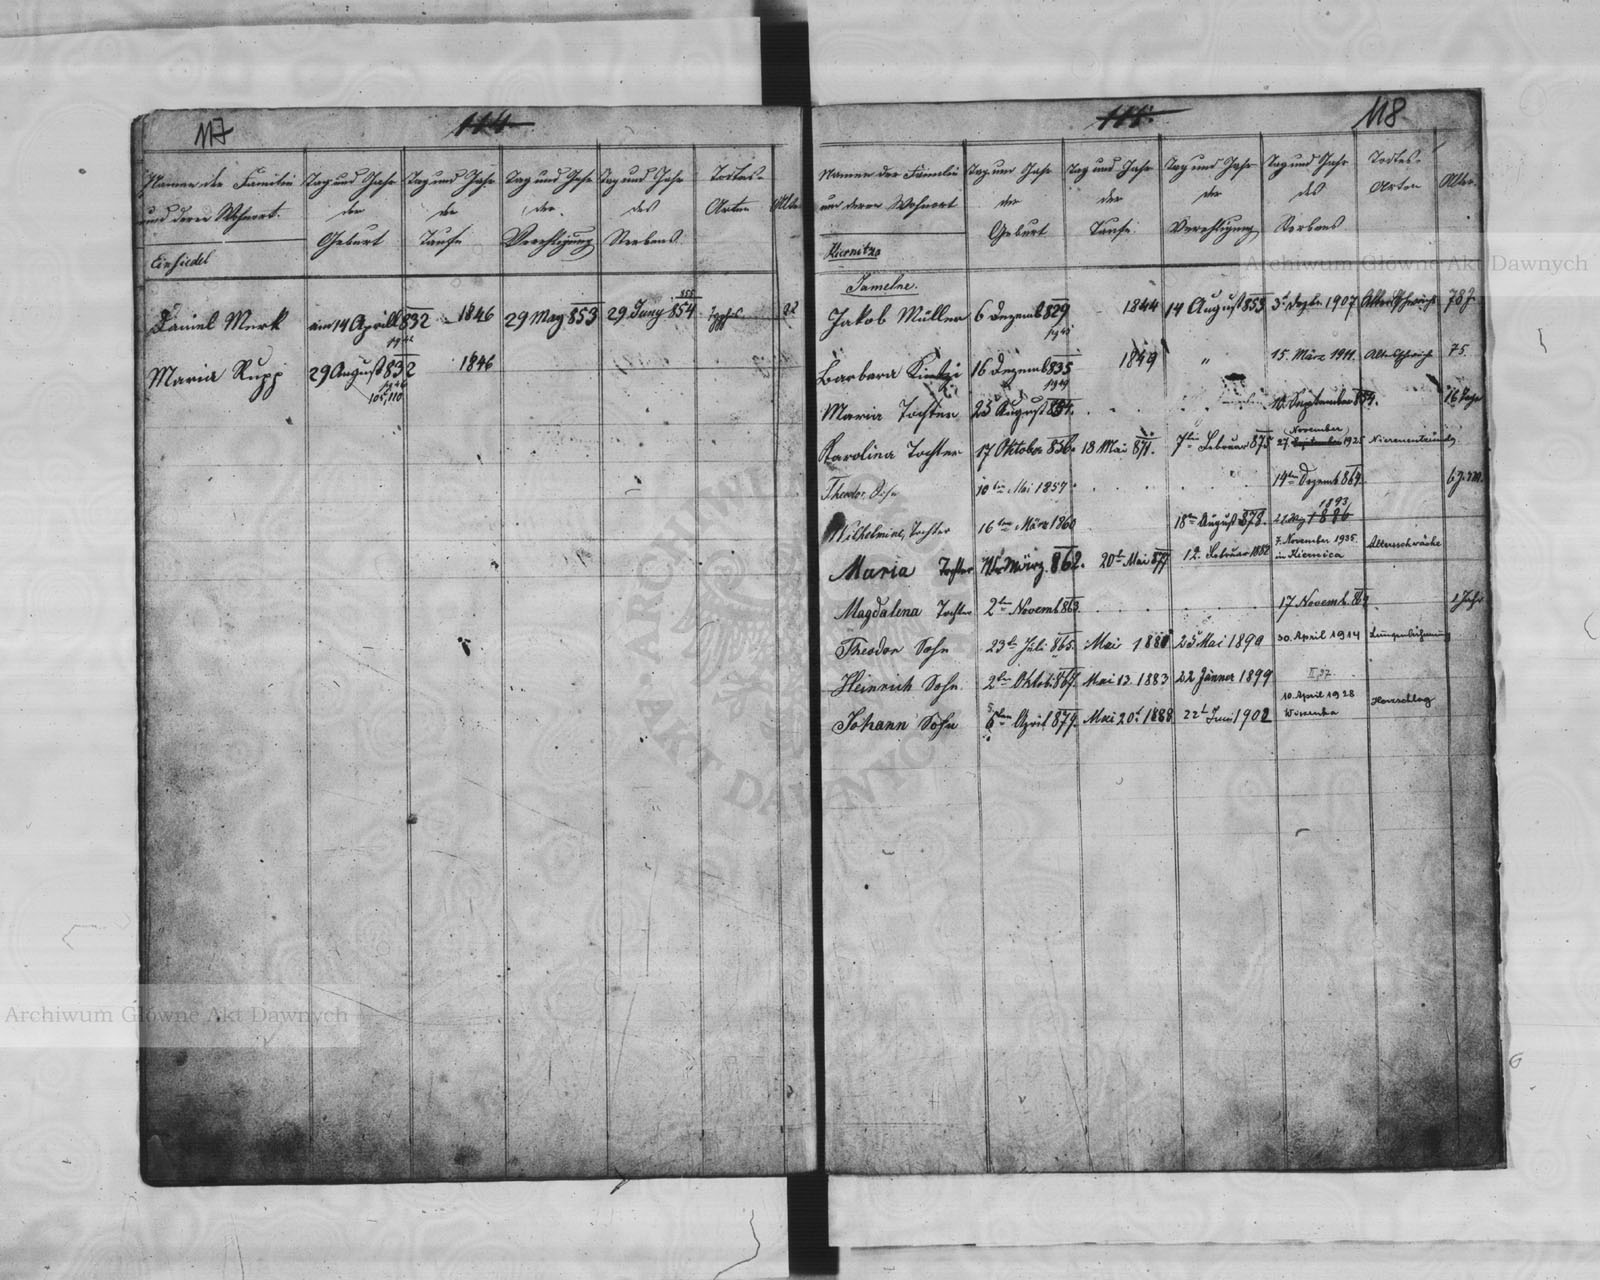 117
114
Namen der Familien Tag und Jahr Tag und Jahr Tag und Jahr Tag und Jahr Todtes-
und deren Wohnort. der der der des Arten Alter
Geburt Taufe Verehligung Sterbens
Einsiedel
Daniel Merk am 14 April 832 1846 29 May 853 29 Juny 854 22
855
Maria Rupp 29 August 832 1846
118
Namen der Familien Tag und Jahr Tag und Jahr Tag und Jahr Tag und Jahr Todtes-
und deren Wohnort der der der des Arten Alter.
Geburt Taufe Verehligung Sterbens
Kiernitza
Jamelne.
Jakob Müller 6 Dezemb 829 1844 14 August 853 3t Dezbr. 1907 Altersschwäche 78 J.
Barbara Kintzi 16 Dezemb 835 1849 " 15. März 1911. Altersschwäche 75.
Maria Tochter 25 August 854. 10. September 854. 16 Tage
Karolina Tochter 17 Oktober 856. 18 Mai 871. 7ten Februar 875 27. September 1925
November
Theodor Sohn 10ten Mai 1857. 14ten Dezemb 864
Wilhelmine, Tochter 16ten März 1860 18ten August 878. 1886
1893
Maria Tochter März. 862. 20t Mai 877 12. Februar 1882 7. November 1935. in Kiernica Altersschwäche
Magdalena Tochter 2ten Novemb 863 17 Novemb. 864 1 Jahr
Theodor Sohn 23t Juli 865. Mai 1880 25 Mai 1890 30. April 1914 Lungenlähmung
Heinrich Sohn. 2ten Oktob. 867. Mai 13. 1883 22 Jänner 1899
Johann Sohn 6ten April 879. Mai 20t 1888 22t Juni 1902 10. April 1928 Herzschlag
Archiwum Główne Akt Dawnych
Archiwum Główne Akt Dawnych